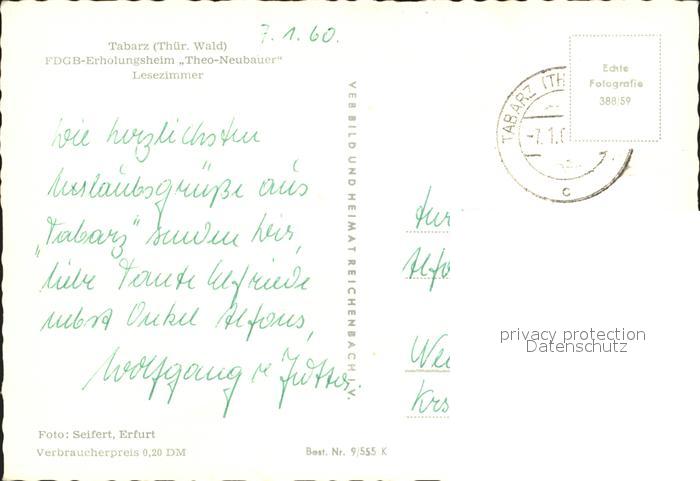 7.1.60.
Tabarz (Thür. Wald)
FDGB-Erholungsheim „Theo-Neubauer"
Lesezimmer
Die herzlichsten
Urlaubsgrüße aus
„Tabarz" senden Dir,
liebe Tante Elfriede
nebst Onkel Alfons,
Wolfgang u. Jutta.
Foto: Seifert, Erfurt
Verbraucherpreis 0,20 DM
VEB BILD UND HEIMAT REICHENBACH I. V.
Best. Nr. 9/555 K
Echte
Fotografie
388/59
TABARZ (TH
-7.1.6
c
Alfo
Wei
Krs
privacy protection
Datenschutz